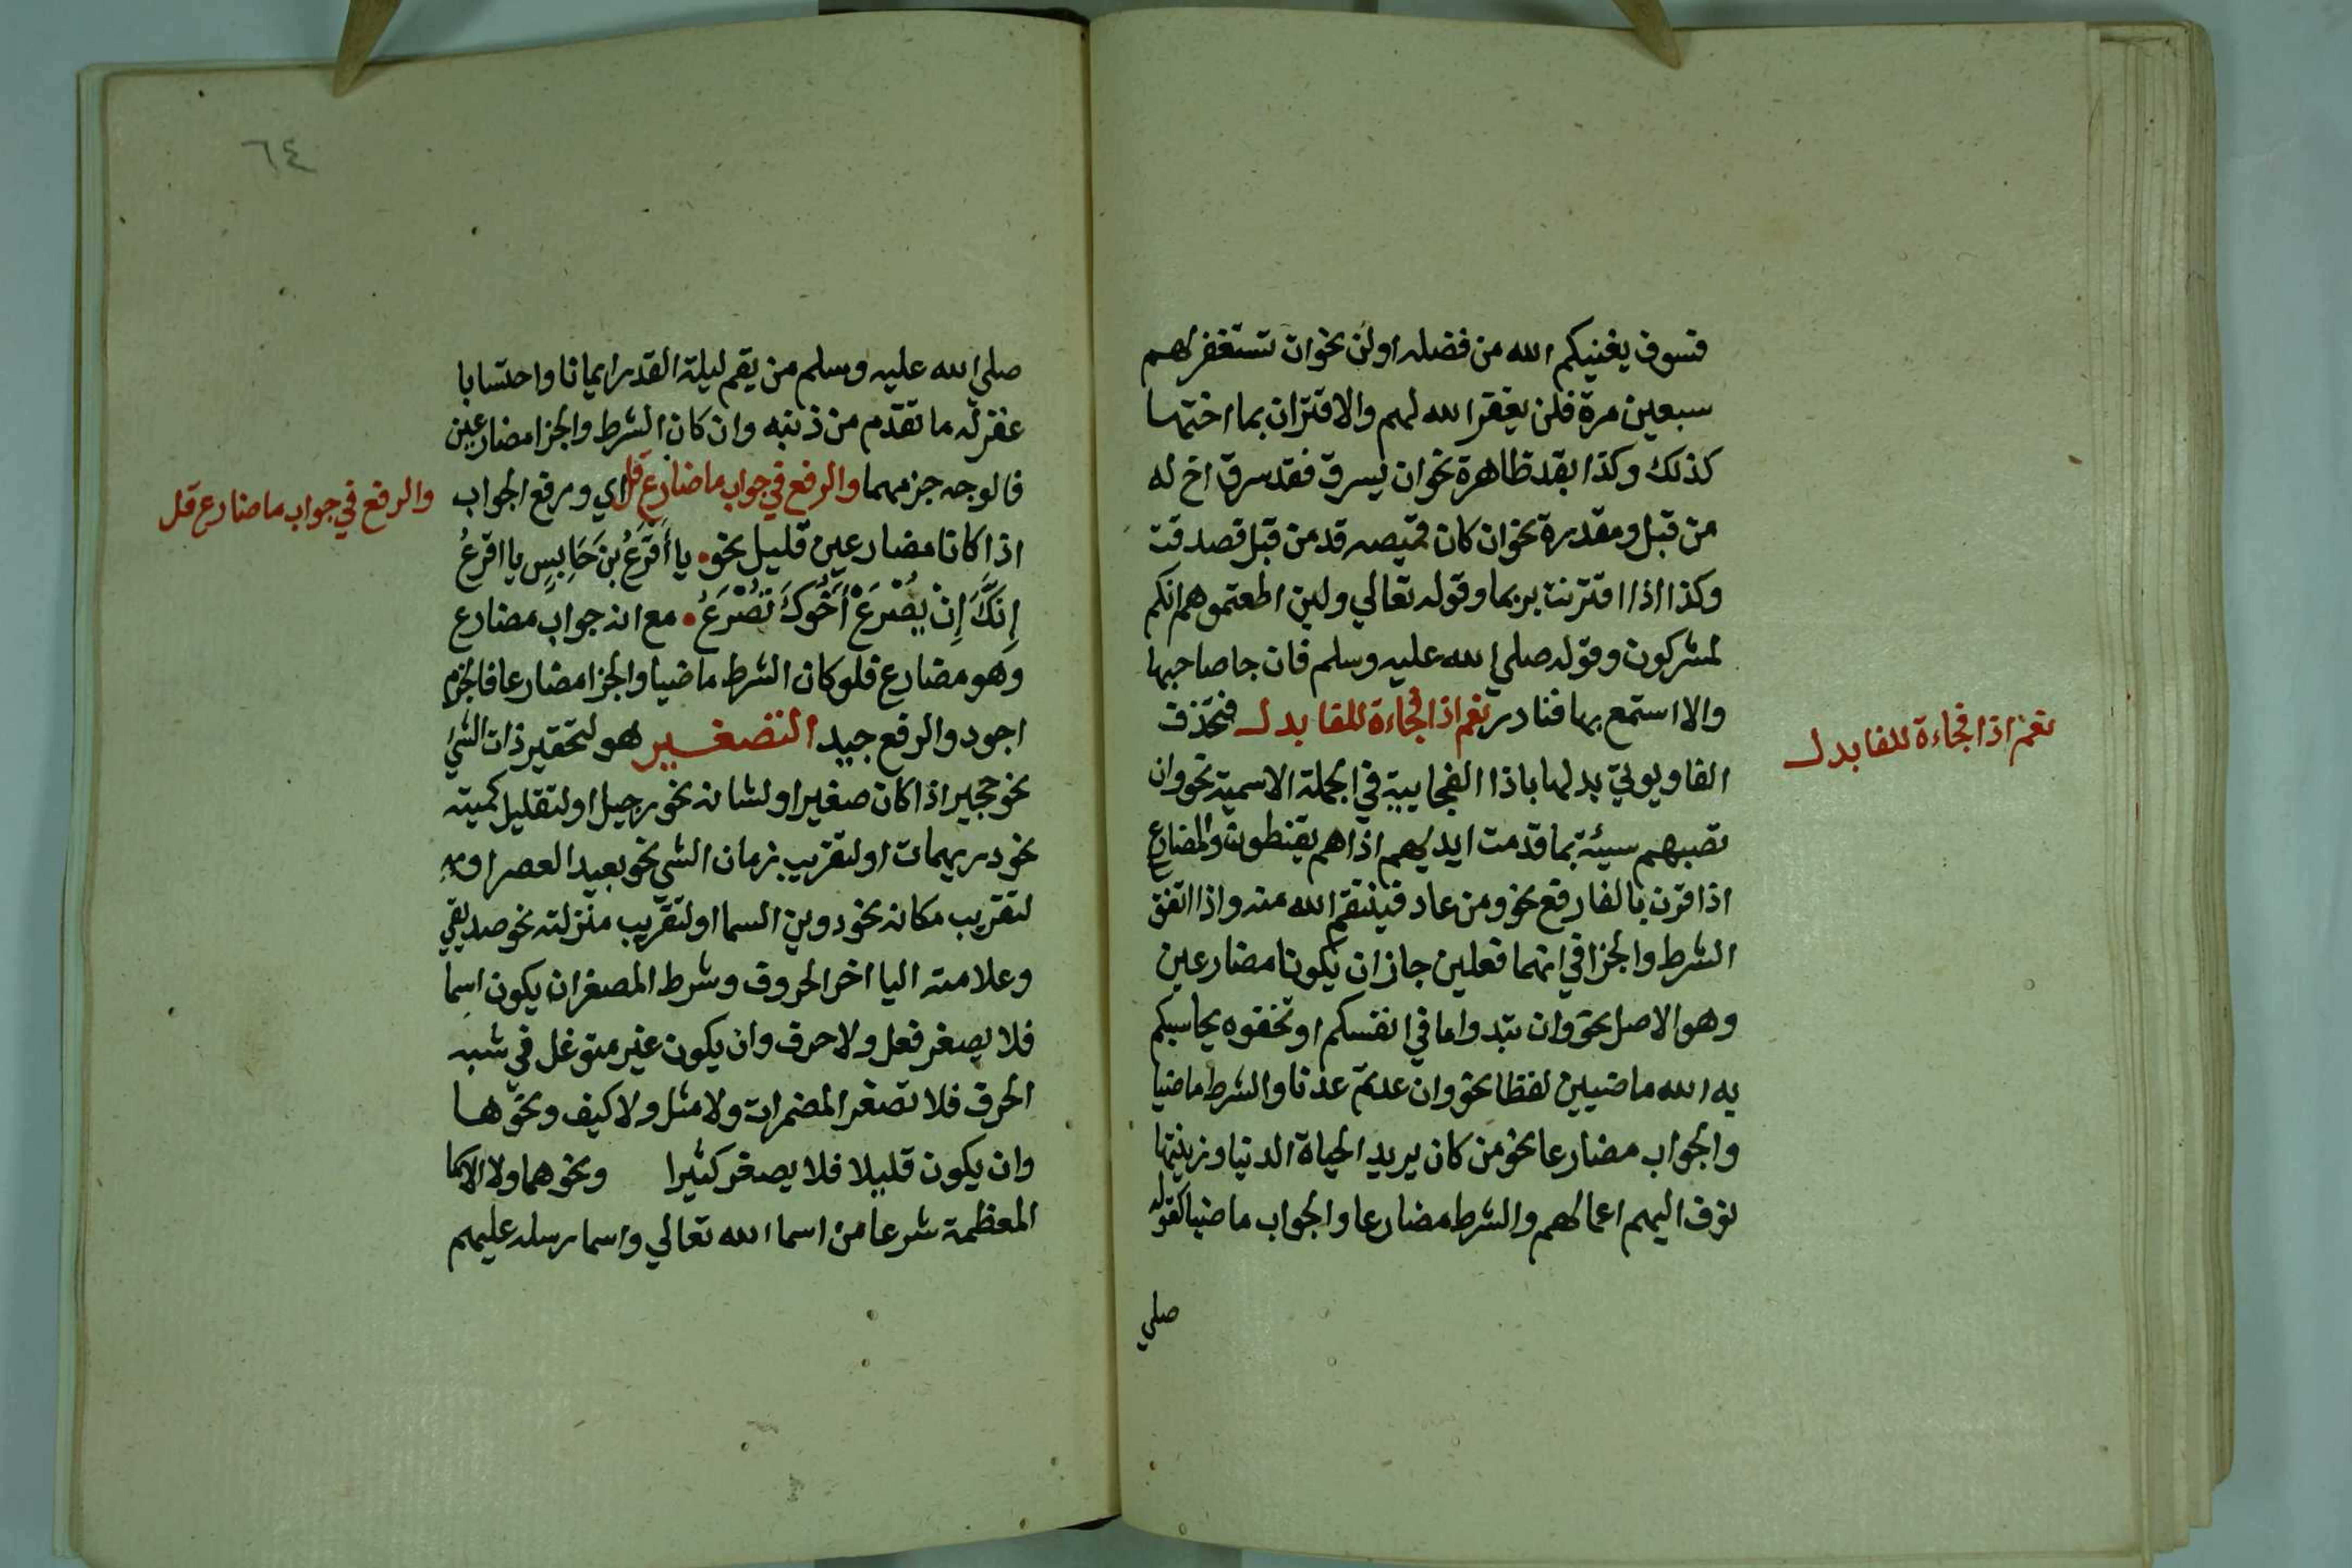 فسوف يغنيكم الله من فضله او لن نحو ان تستغفر لهم
سبعين مرة فلن يغفر الله لهم والاقتران بما اختها
كذلك وكذا بقد ظاهرة نحو ان يسرق فقد سرق اخ له
من قبل ومقدرة نحو ان كان قميصه قد من قبل فصدقت
وكذا اذا اقترنت بربما وقوله تعالي ولين اطعتموهم انكم
لمشركون وقوله صلي الله عليه وسلم فان جا صاحبها
والا استمتع بها فنادر نعم اذا فجاءة للفا بدل فتحذف
نعم اذا فجاءة للفا بدل
الفا ويوتي بدلها باذا الفجايية في الجملة الاسمية نحو وان
تصبهم سيئة بما قدمت ايديهم اذا هم يقنطون والمضارع
اذا قرن بالفا رفع نحو ومن عاد فينتقم الله منه واذا اتفق
الشرط والجزا في انهما فعلين جاز ان يكونا مضارعين
وهو الاصل نحو وان تبدوا ما في انفسكم او تخفوه يحاسبكم
به الله ماضيين لفظا نحو وان عدتم عدنا والشرط ماضيا
والجواب مضارعا نحو من كان يريد الحياة الدنيا وزينتها
نوف اليهم اعمالهم والشرط مضارعا والجواب ماضيا كقوله
صلي
٦٤
صلي الله عليه وسلم من يقم ليلة القدر ايمانا واحتسابا
غفر له ما تقدم من ذنبه وان كان الشرط والجزا مضارعين
فالوجه جزمهما والرفع في جواب ما ضارع قل اي ورفع الجواب
والرفع في جواب ما ضارع قل
اذا كانا مضارعين قليل نحو يا أَقْرَعُ بنَ حَابِسٍ يا اقرعُ
إِنَّكَ إِنْ يُصْرَعْ أَخُوكَ تُصْرَعُ مع انه جواب مضارع
وهو مضارع فلو كان الشرط ماضيا والجزا مضارعا فالجزم
اجود والرفع جيد التصغير هو لتحقير ذات الشيء
نحو حجير اذا كان صغيرا او لشانه نحو رجيل او لتقليل كميته
نحو دريهمات او لتقريب زمان الشي نحو بعيد العصر او
لتقريب مكانه نحو دوين السما او لتقريب منزلته نحو صديقي
وعلامته اليا اخر الحروف وشرط المصغر ان يكون اسما
فلا يصغر فعل ولا حرف وان يكون غير متوغل في شبه
الحرف فلا تصغر المضمرات ولا مثل ولا كيف ونحوها
وان يكون قليلا فلا يصغر كثيرا ونحوهما ولا الاسما
المعظمة شرعا من اسما الله تعالي واسما رسله عليهم